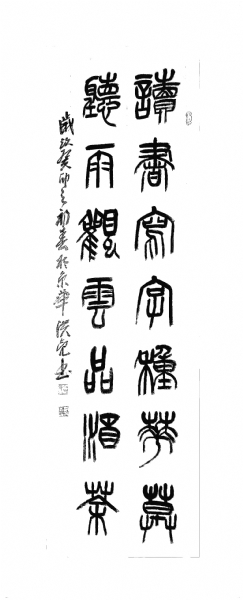 讀書寫字種華草
聽雨觀雲品酒茶
歲次癸卯之初春於京華